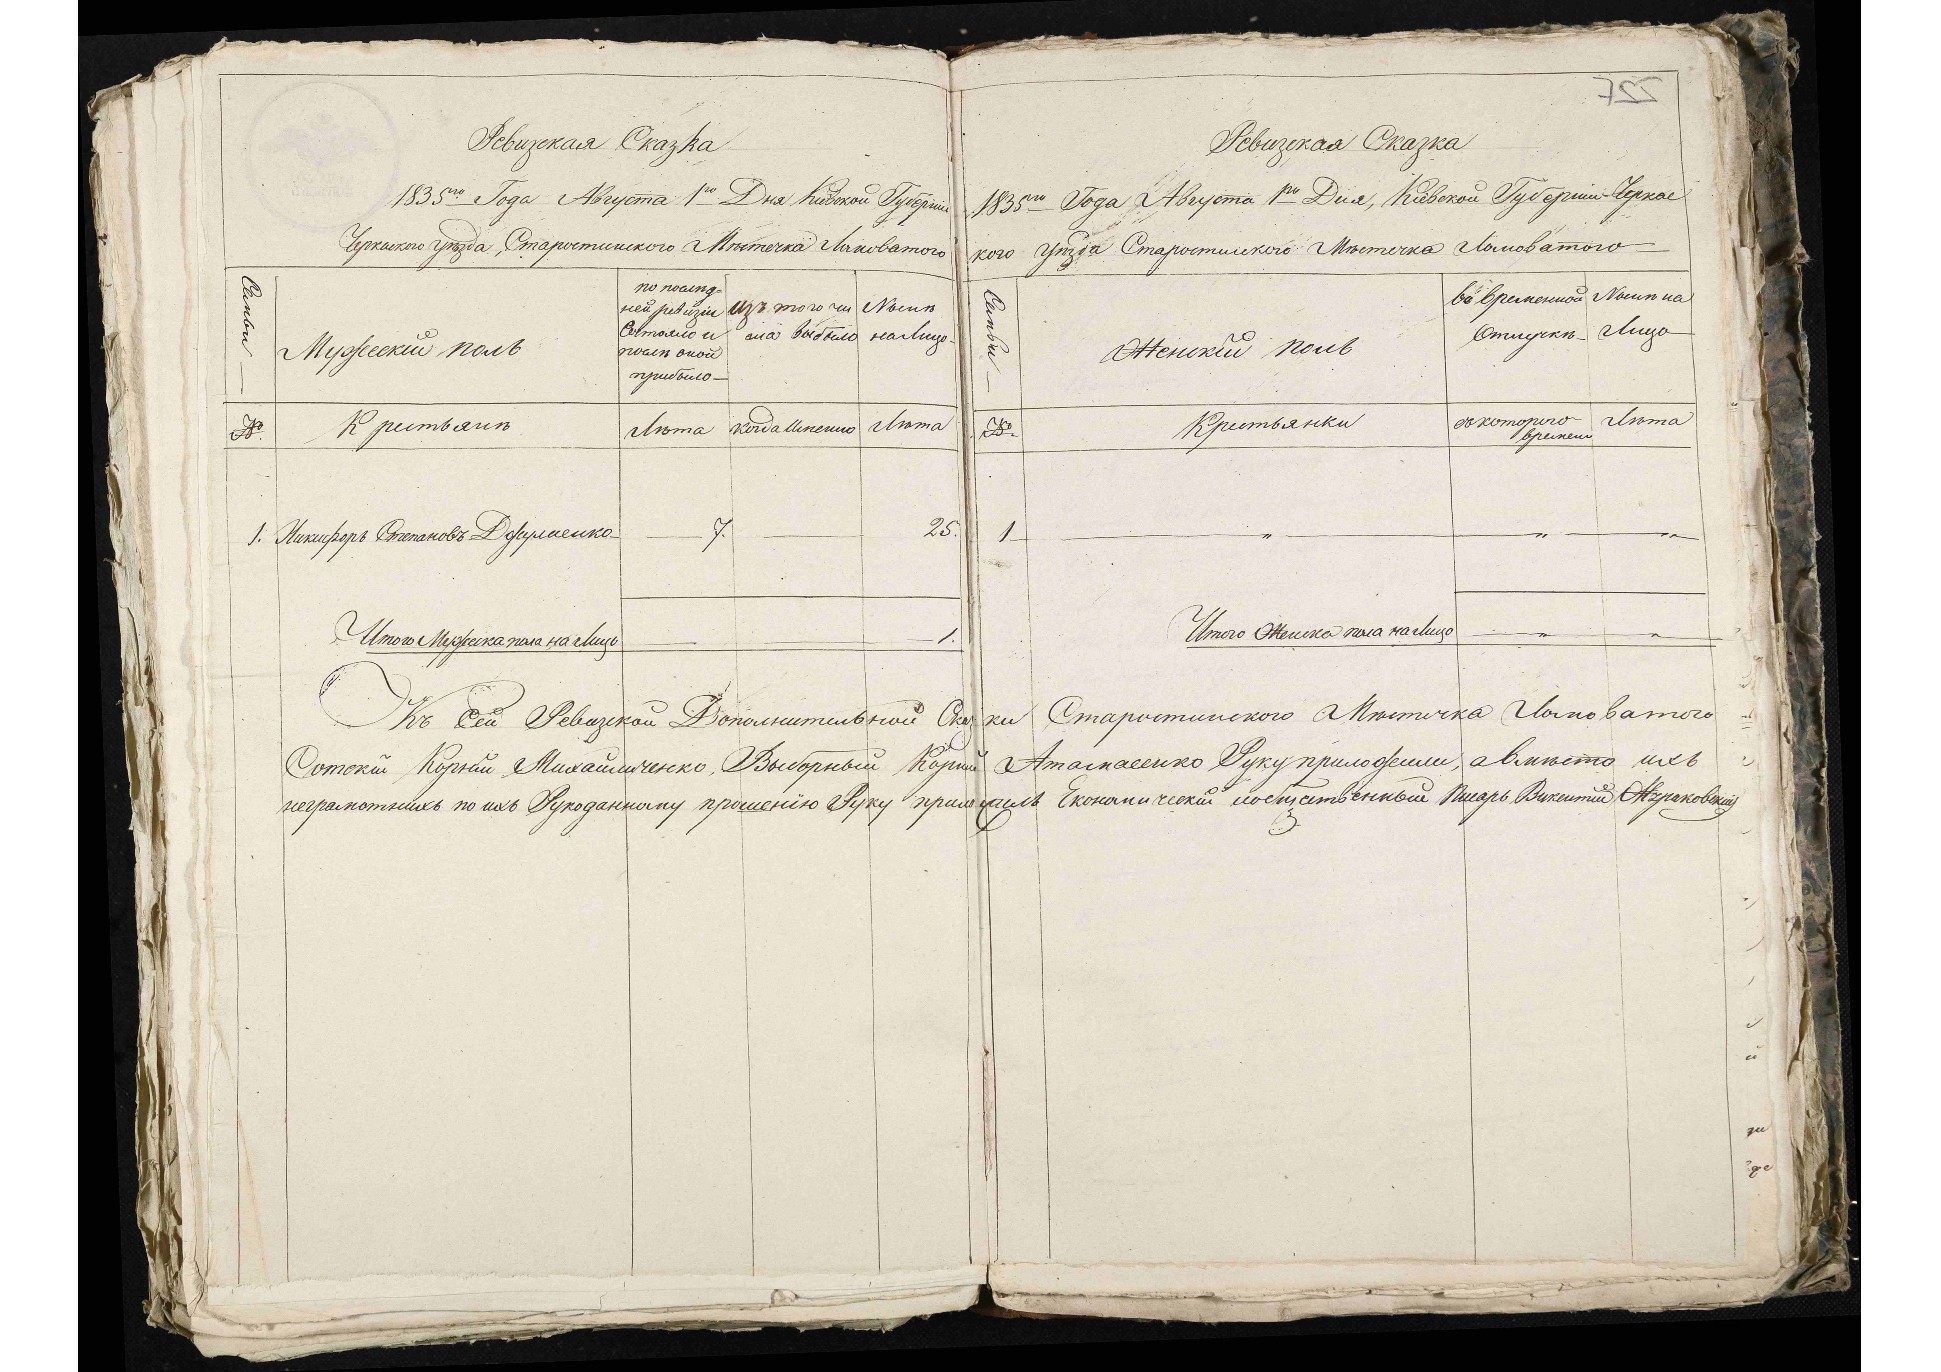 Ревизская Сказка
1835го Года Августа 1го Дня Киевской Губернии
Черкаского уезда, Старостинского Мѣстечка Ломоватого
Семьи
Мужескій полъ
по послѣд=
ней ревизіи
Состояло и
послѣ оной
прибыло
Изъ того чи
сла выбыло
Нынѣ
на Лицо
№.
Крестьянѣ
Лѣта
когда именно
Лѣта
1. Никифоръ Степановъ Джулаенко 7. 25.
Итого Мужеска пола на Лицо 1.
Ревизская Сказка
1835го Года Августа 1го Дня, Киевской Губерніи Черкас
кого уѣзда Старостинского Мѣстечка Ломоватого
Семьи
Женскій полъ
во временной
Отлучкѣ
Нынѣ на
Лицо
№.
Крестьянки
съ которого
времени
Лѣта
1 " " "
Итого Женска пола на Лицо " "
Къ Сей Ревизской Дополнительной Сказки Старостинского Мѣстечка Ломоватого
Сотскій Корній Михайличенко, Выборный Корній Атамасенко Руку приложили, а вмѣсто ихъ
неграмотныхъ по ихъ Рукоданному прошенію Руку приложилъ Економическій Писарь Викентий